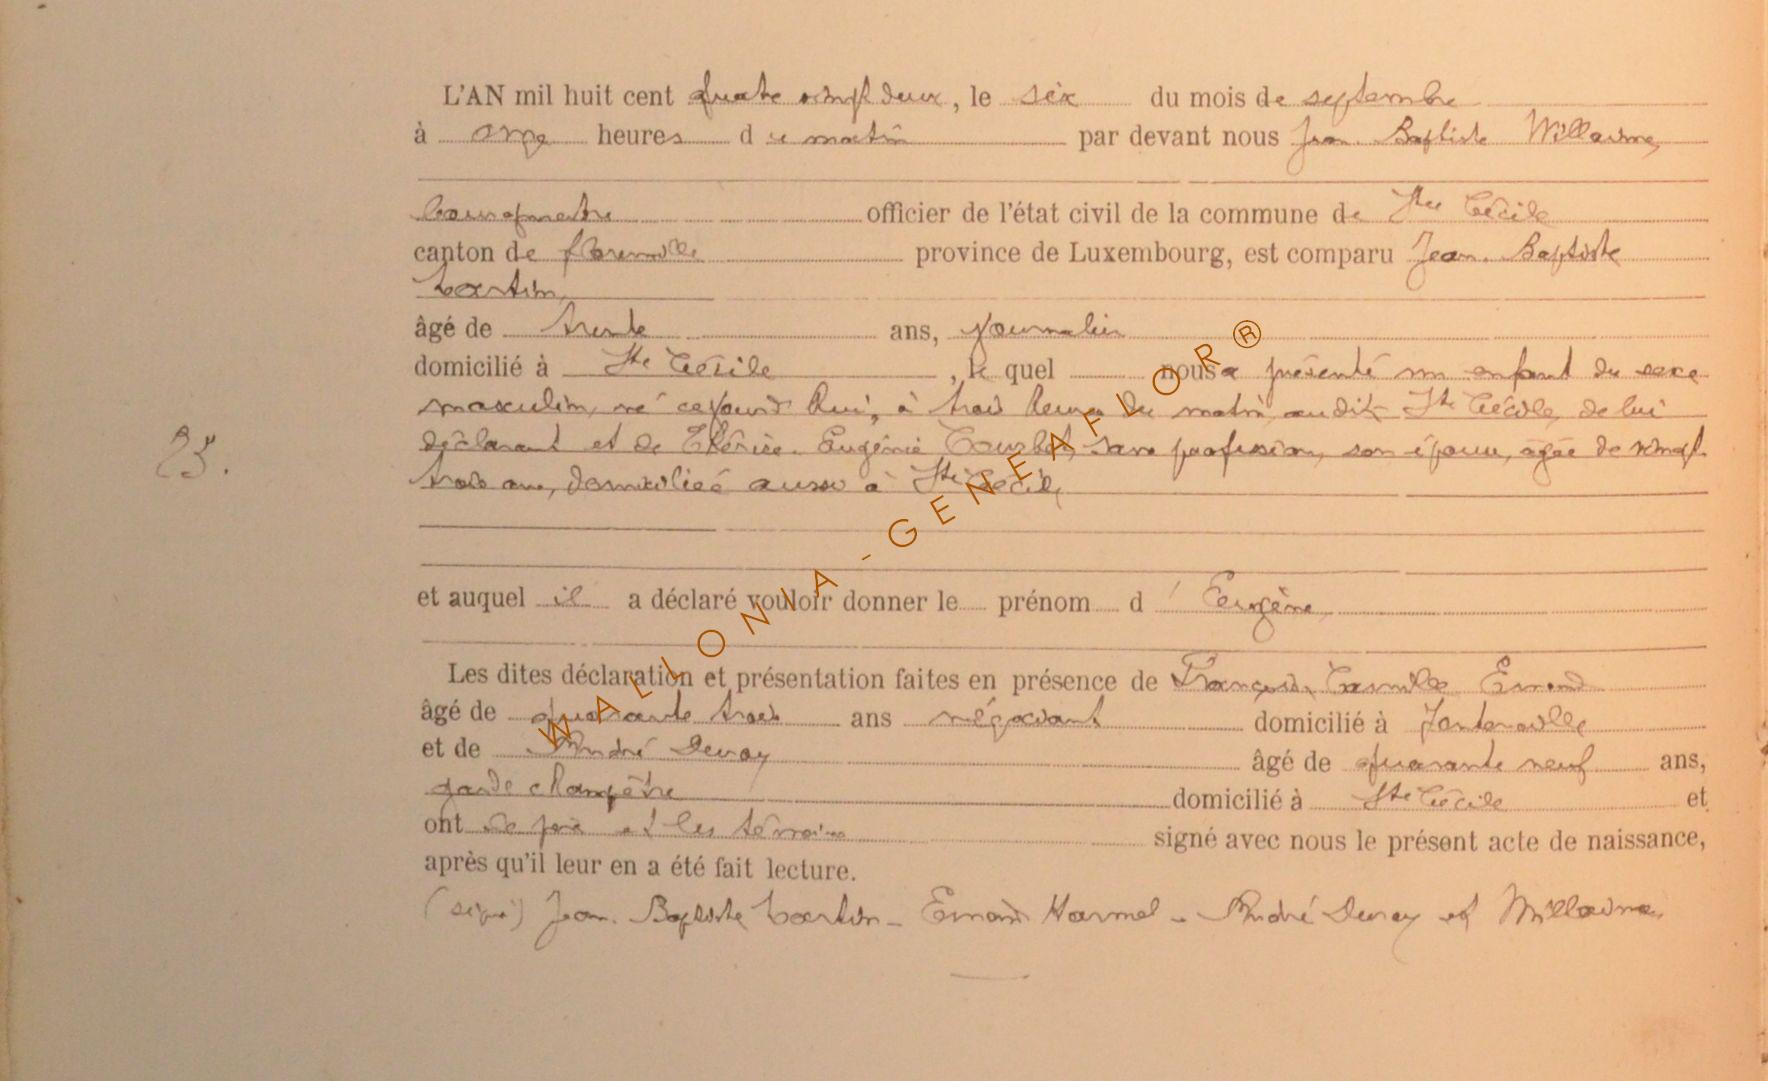 L'AN mil huit cent quatre vingt deux, le six du mois de septembre
à onze heures du matin par devant nous Jean Baptiste Willaime,
bourgmestre officier de l'état civil de la commune de Ste Cécile
canton de florenville province de Luxembourg, est comparu Jean Baptiste
âgé de trente ans, journalier
domicilié à Ste Cécile, le quel nous a présenté un enfant du sexe
masculin, né cejourd'hui, à trois heures du matin, audit Ste Cécile, de lui
25.
déclarant et de Eugénie sans profession, son épouse, âgée de vingt
trois ans, domiciliée aussi à Ste Cécile
et auquel il a déclaré vouloir donner le prénom d'Eugène,
Les dites déclaration et présentation faites en présence de François Camille Emond
âgé de quarante trois ans négociant domicilié à Fontenoille
et de André âgé de quarante neuf ans,
garde champêtre domicilié à Ste Cécile et
ont le père et les témoins signé avec nous le présent acte de naissance,
après qu'il leur en a été fait lecture.
(signé) Jean Baptiste - Emond Harmel - André et Willaime
WALLONIA - GENEAFLOR ®